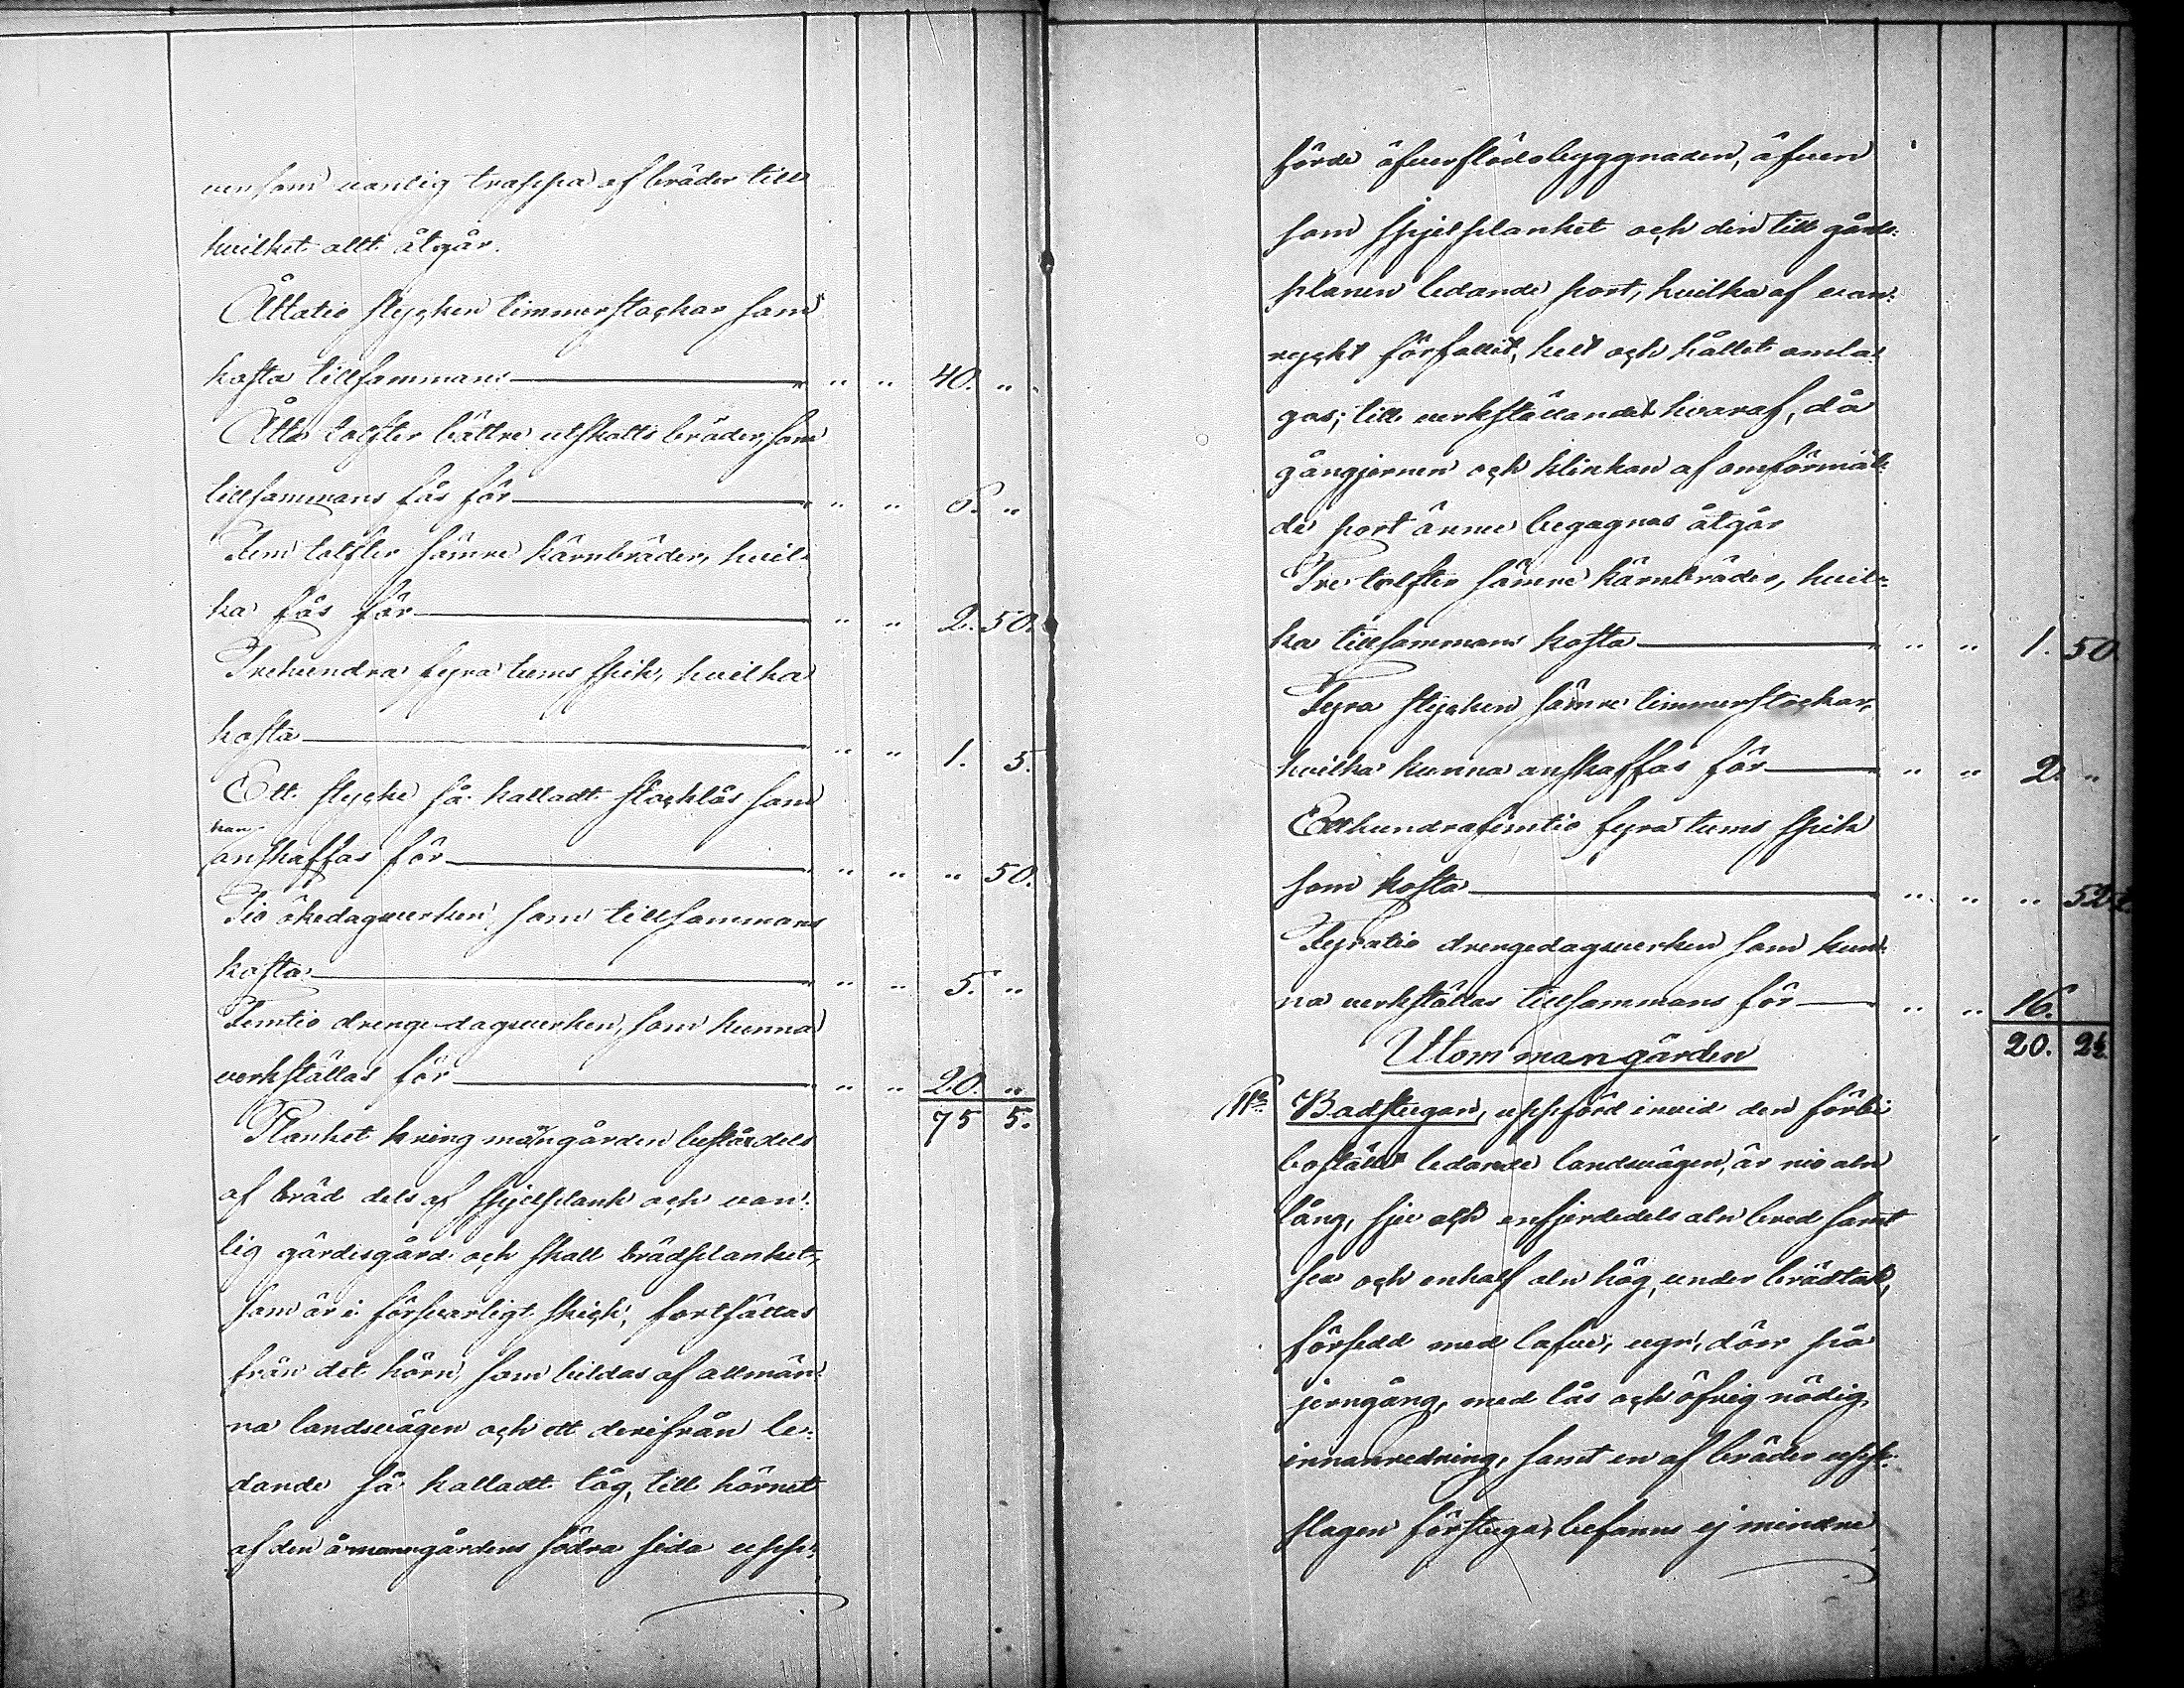 ven som vanlig trappa af bräder till
hvilket allt åtgår.
Åttatio stycken timmerstockar som
kosta tillsammans — " " 40. "
Åtta tolfter bättre utskotts bräder, som
tillsammans fås för — " " 6. "
Fem tolfter sämre kärnbräder, hvil-
ka fås för — " " 2. 50.
Trehundra fyra tums spik, hvilka
kosta — " " 1. 5.
Ett stycke så kalladt stocklås som
kan
anskaffas för — " " " 50.
Tio ökedagsverken, som tillsammans
kosta — " " 5. "
Femtio drenge-dagsverken, som kunna
verkställas för — " " 20. "
75 5.
Planket kring mangården består dels
af bräd dels af spjelplank och van-
lig gärdisgård och skall brädplanket,
som är i försvarligt skick, fortsättas
från det hörn, som bildas af allmän-
na landsvägen och ett derifrån le-
dande så kalladt tåg, till hörnet
af den å manngårdens södra sida upp-
förde öfverflödsbyggnaden, äfven
som spjelplanket och den till gårds-
planen ledande port, hvilka af van-
ryckt förfallit, helt och hållet omla-
gas; till verkställandet hvaraf, då
gångjernen och klinkan af omförmäl-
de port ännu begagnas åtgår
Tre tolfter sämre kärnbräder, hvil-
ka tillsammans kosta — " " 1. 50.
Fyra stycken sämre timmerstockar,
hvilka kunna anskaffas för — " " 2. "
Etthundrafemtio fyra tums spik
som kosta — " " " 52½.
Fyratio drengedagsverken som kun-
na verkställas tillsammans för — " " 16.
Utom mangården 20. 2½.
11o Badstugan, uppförd invid den förbi
bostället ledande landsvägen, är nio aln
lång, sju och enfjerdedels aln bred samt
fem och enhalf aln hög, under brädtak,
försedd med lafve, ugn, dörr på
jerngång, med lås och öfrig nödig
innanredning, samt en af bräder upp-
slagen förstuga, befanns ej mindre